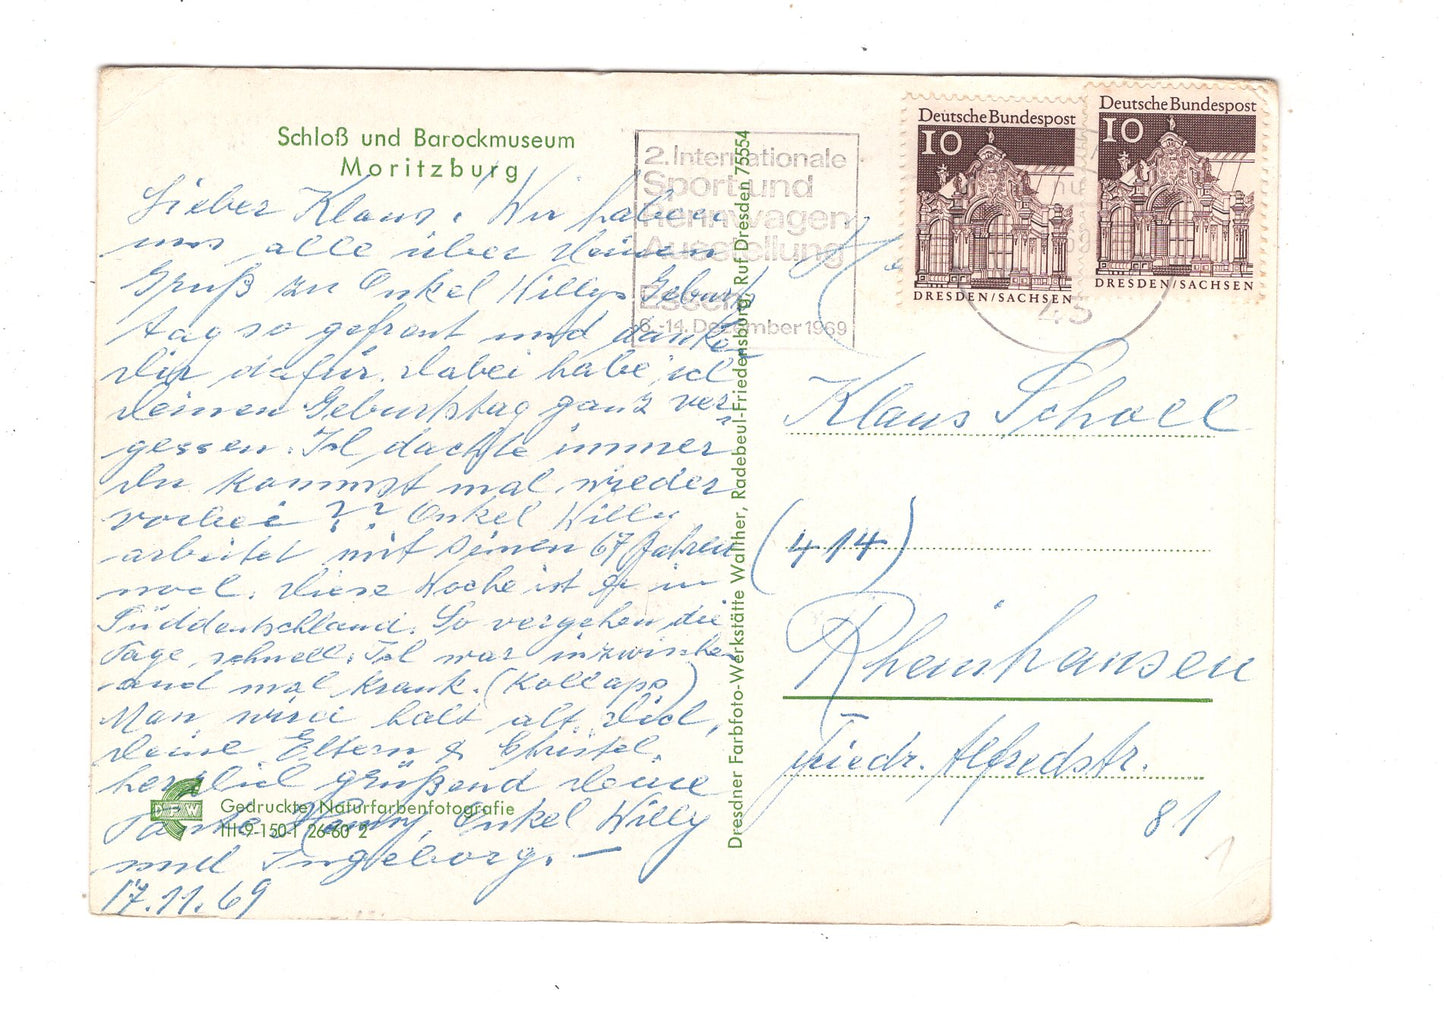 Schloß und Barockmuseum
Moritzburg
Lieber Klaus! Wir haben
uns alle über Deinen
Gruß zu Onkel Willys Geburts
tag so gefreut und danke
Dir dafür. Dabei habe ich
Deinen Geburtstag ganz ver-
gessen. Ich dachte immer
Du kommst mal wieder
vorbei ?? Onkel Willy
arbeitet mit seinen 67 Jahren
noch. Diese Woche ist er in
Süddeutschland. So vergehen die
Tage schnell. Ich war inzwischen
auch mal krank. (Kollaps)
Man wird halt alt. Dich,
Deine Eltern & Christel,
herzlich grüßend Deine
Tante, Onkel Willy
und Ingeborg. —
17.11.69
Gedruckte Naturfarbenfotografie
III-9-150-1 26-60 2
Dresdner Farbfoto-Werkstätte Walther, Radebeul-Friedensburg, Ruf Dresden 75554
2. Internationale
Sport-und
Rennwagen
Ausstellung
Essen
6.-14. Dezember 1969
Deutsche Bundespost
10
DRESDEN/SACHSEN
Deutsche Bundespost
10
DRESDEN/SACHSEN
45
Klaus Scholl
(414)
Rheinhausen
Friedr. Alfredstr.
81